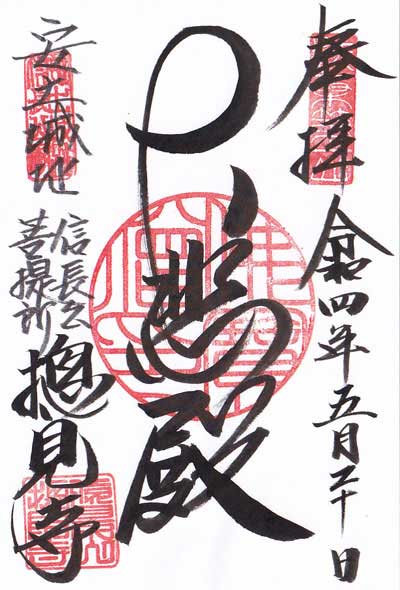 奉拝
令和四年五月二十日
大悲殿
安土城址
信長公
菩提所
摠見寺